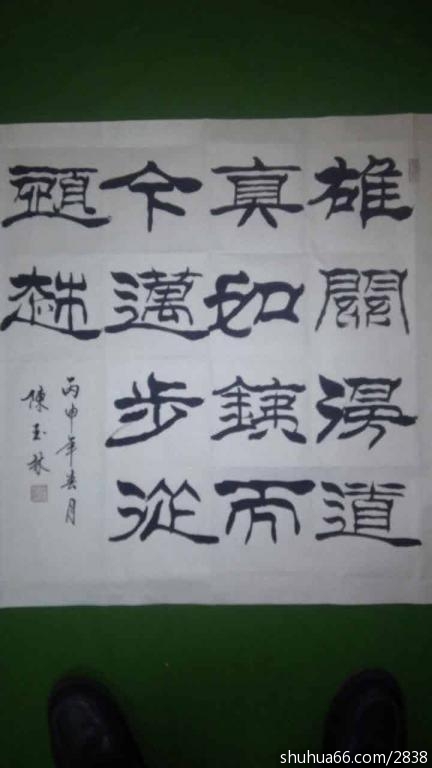 雄關漫道
真如銕而
今邁步從
頭越
丙申年春月
陳玉
shuhua66.com/2838